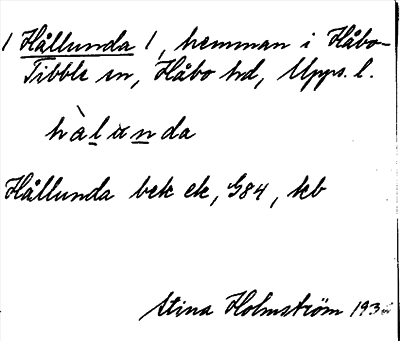 / Hållunda /, hemman i Håbo-
Tibble sn, Håbo hd, Upps. l.
hàlunda
Hållunda bek ek, G84, kb
Stina Holmström